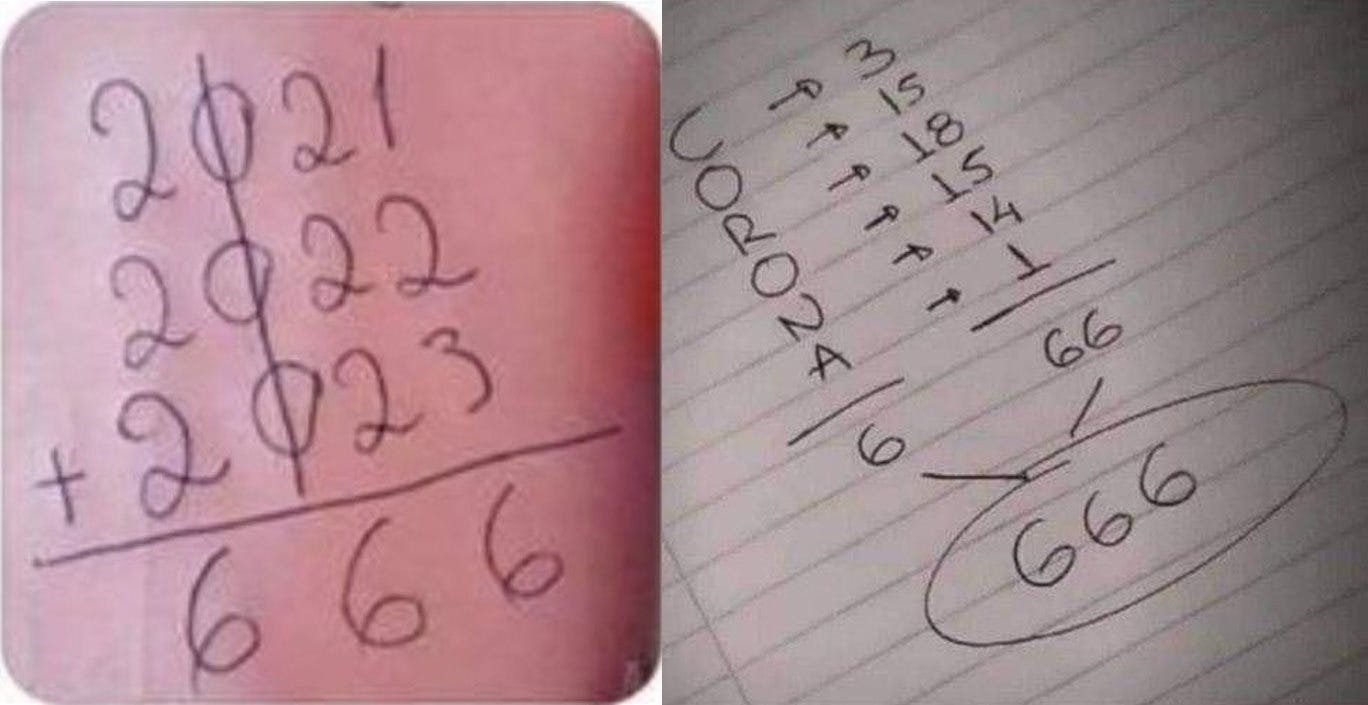 2021
2022
+ 2023
666
C → 3
O → 15
R → 18
O → 15
N → 14
A → 1
6
66
666